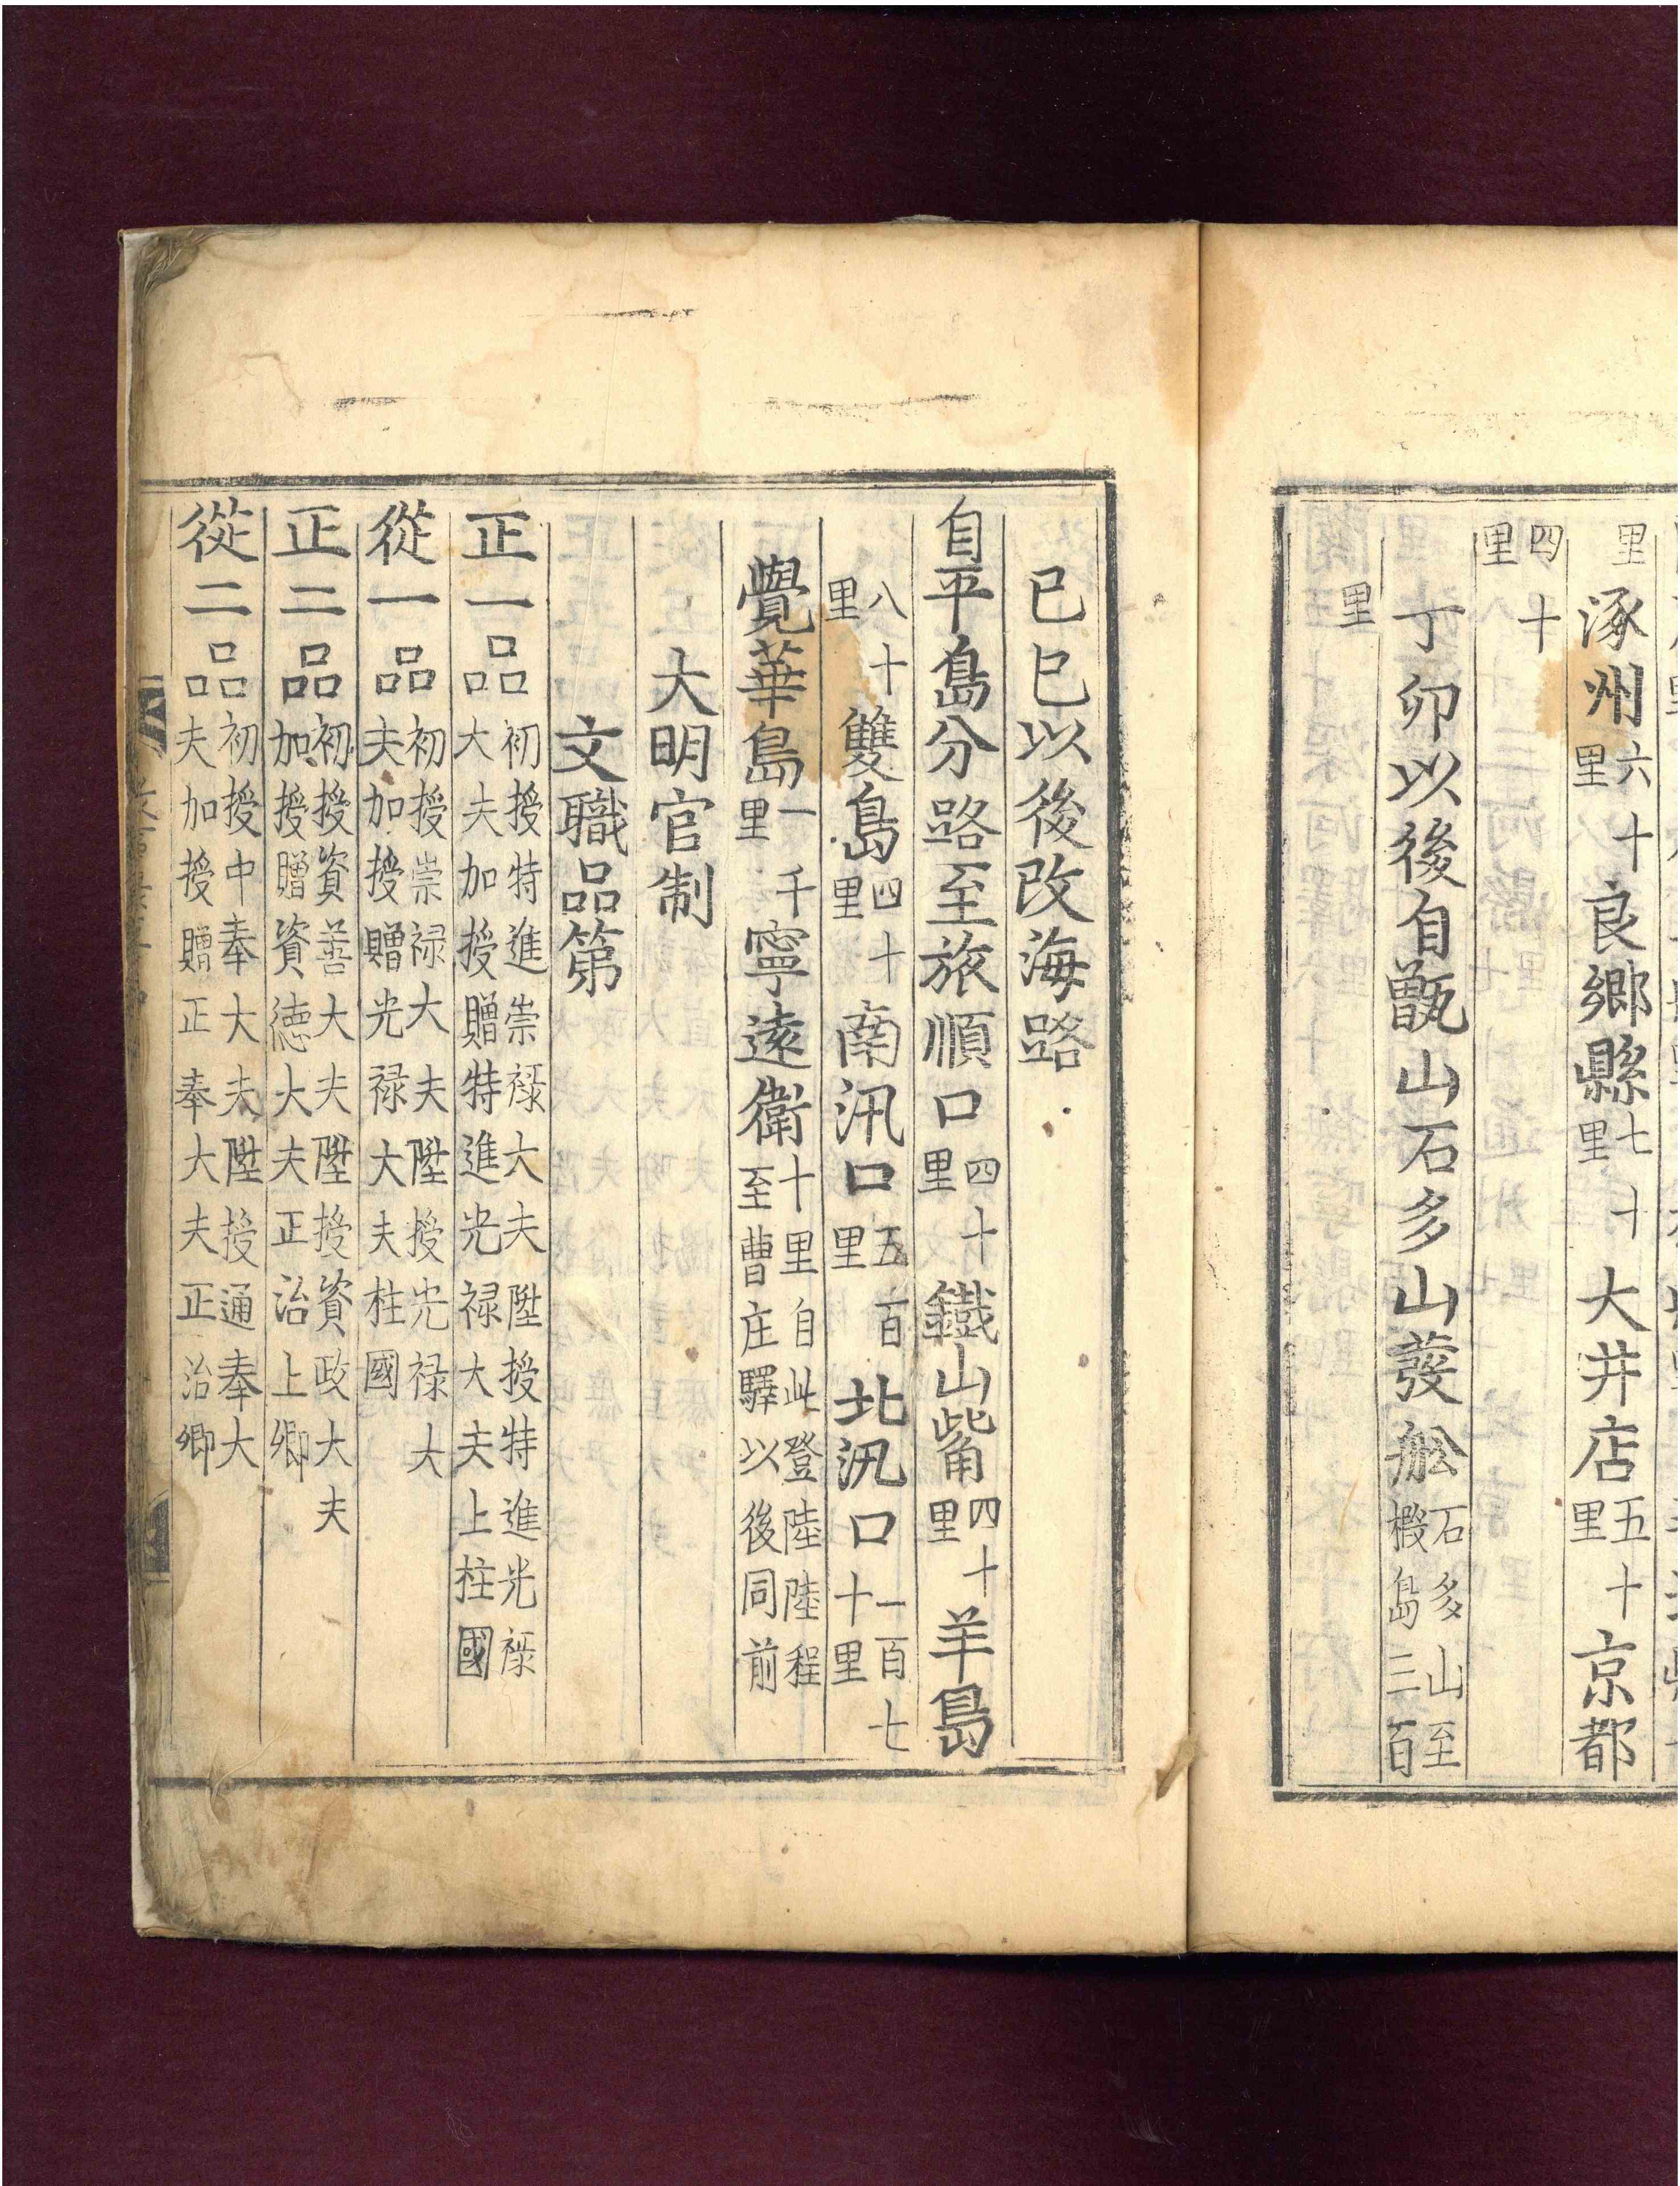 里 涿州六十里 良鄉縣七十里 大井店五十里 京都
四十里
丁卯以後自甑山石多山發舩石多山至椵島三百
里
已巳以後改海路
自平島分路至旅順口四十里 鐵山觜四十里 羊島
八十里 雙島四十里 南汛口五百里 北汛口一百七十里
覺華島一千里 寧遠衛十里自此登陸陸程至曹庄驛以後同前
大明官制
文職品第
正一品初授特進崇禄大夫陞授特進光禄大夫加授贈特進光禄大夫上柱國
從一品初授崇禄大夫陞授光禄大夫加授贈光禄大夫柱國
正二品初授資善大夫陞授資政大夫加授贈資德大夫正治上卿
從二品初授中奉大夫陞授通奉大夫加授贈正奉大夫正治卿